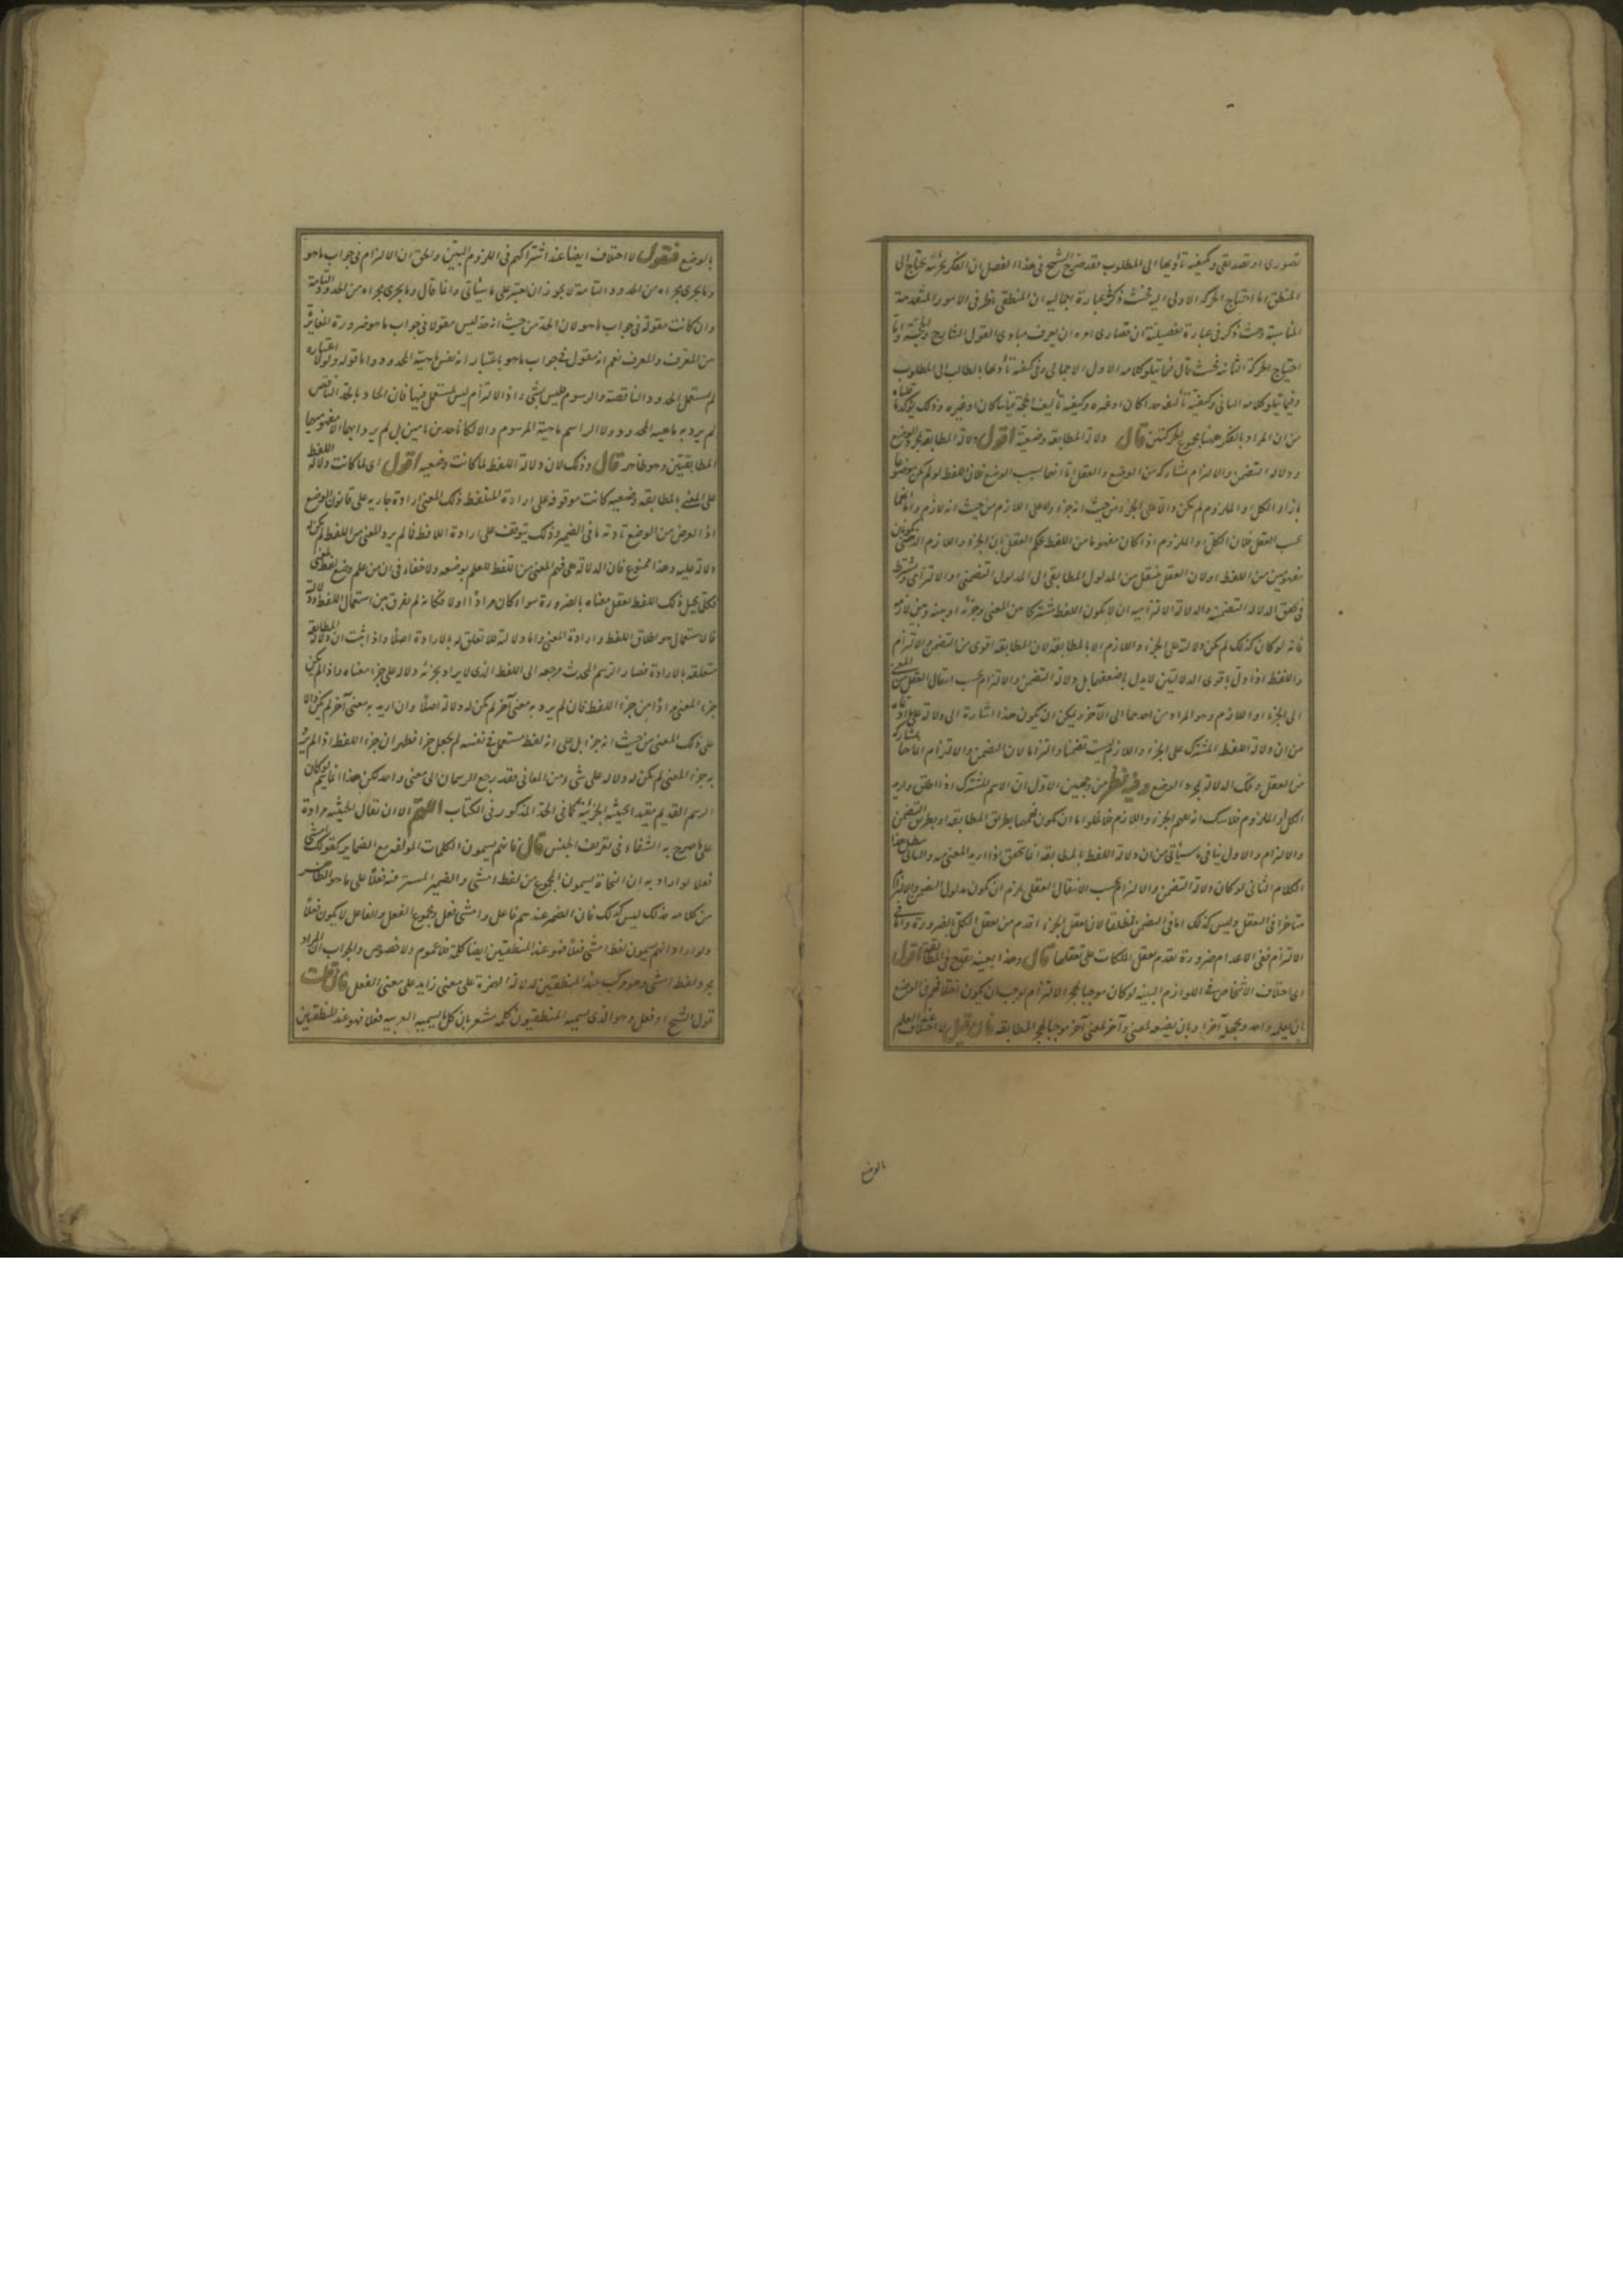 تصوری او تصدیقی وکیفیه تأدیها الی المطلوب فقد صرح الشیخ فی هذا الفصل ان الفکر بجزئیه محتاج الی
المنطق اما احتیاج الحرکه الاولی الیه فحیث ذکر بعبارة اجمالیه ان المنطقی ناظر فی الامور المتقدمة
المناسبة وحیث ذکر فی عبارة تفصیلیة ان قصاری امره ان یعرف مبادی القول الشارح والحجة واما
احتیاج الحرکة الثانیه فحیث قال فیما یتلو کلامه الاول الاجمالی وفی کیفیة تأدیها بالطالب الی المطلوب
وفیما یتلو کلامه الثانی وکیفیة تألیفه حدا کان او غیره وکیفیه تألیف الحجة قیاسا کان او غیره وذلک یؤکد ما قلناه
من ان المراد بالفکر ههنا مجموع الحرکتین قال دلالة المطابقه وضعیة اقول دلالة المطابقه بمجرد الوضع
ودلالة التضمن والالتزام بمشارکه من الوضع والعقل اما انها بسبب الوضع فلان اللفظ لو لم یکن موضوعا
بازاء الکل او الملزوم لم یکن دالا علی الجزء من حیث انه جزء ولا علی اللازم من حیث انه لازم واما انها
بحسب العقل فلان الکل او الملزوم اذا کان مفهوما من اللفظ یحکم العقل بان الجزء واللازم ایضا یکونان
مفهومین من اللفظ اولان العقل ینتقل من المدلول المطابقی الی المدلول التضمنی او الالتزامی ویشترط
فی تحقق الدلالة التضمنیه والدلالة الالتزامیه ان لا یکون اللفظ مشترکا بین المعنی وجزئه او بینه وبین لازمه
فانه لو کان کذلک لم یکن دلالته علی الجزء واللازم الا بالمطابقه لان المطابقه اقوی من التضمن والالتزام
واللفظ اذا دل باقوی الدلالتین لا یدل باضعفهما بل دلالة التضمن والالتزام بحسب انتقال العقل من المعنی
الی الجزء او اللازم وهو المراد من احدهما الی الآخر ویمکن ان یکون هذا اشارة الی دلالة علی
من ان دلالة اللفظ المشترک علی الجزء واللازم لیست تضمنا والتزاما لان التضمن والالتزام انما هما بمشارکة
من العقل وتلک الدلالة بمجرد الوضع وفیه نظر من وجهین الاول ان الاسم المشترک اذا اطلق وارید
الکل او الملزوم فلا شک انه یفهم الجزء واللازم فلا یخلو اما ان یکون فهمهما بطریق المطابقه او بطریق التضمن
والالتزام والاول ینافی ما سیأتی من ان دلالة اللفظ بالمطابقه انما یتحقق اذا ارید المعنی منه والثانی یبطل هذا
الکلام الثانی لو کان دلالة التضمن والالتزام بحسب الانتقال العقلی یلزم ان یکون مدلول التضمن والالتزام
متأخرا فی التعقل ولیس کذلک اما فی التضمن فمطلقا لان تعقل الجزء اقدم من تعقل الکل بالضرورة واما فی
الالتزام ففی الاعدام ضرورة تقدم تعقل الملکات علی تعقلها قال وهذا بعینه یقدح فی المطابقة اقول
ای اختلاف الاشخاص فی اللوازم البینه لو کان موجبا لهجر الالتزام لوجب ان یکون اختلافهم فی الوضع
بان یعلمه واحد ویجهله آخر او بان یضعه لمعنی وآخر لمعنی آخر موجبا لهجر المطابقه فان قیل لا اختلاف عند العلم
بالوضع
بالوضع فنقول لا اختلاف ایضا عند اشتراکهم فی اللزوم البین والحق ان الالتزام فی جواب ما هو
وما یجری مجراه من الحدود التامة لا یجوز ان یعتبر علی ما سیأتی وانما قال وما یجری مجراه من الحدود التامة
وان کانت مقولة فی جواب ما هو لان الحد من حیث انه حد لیس مقولا فی جواب ما هو ضرورة المغایرة
بین المعرف والمعرف نعم انه مقول فی جواب ما هو باعتبار انه نفس ماهیة المحدود واما قوله ولولا اعتباره
لم یستعمل الحدود الناقصة والرسوم فلیس بشئ اذ الالتزام لیس یستعمل فیها فان الحاد بالحد الناقص
لم یرد به ماهیه المحدود ولا الراسم ماهیة المرسوم والا لکانا حدین تامین بل لم یرد ابهما الا مفهومیهما
المطابقیین وهو ظاهر قال وذلک لان دلالة اللفظ لما کانت وضعیه اقول ای لما کانت دلالة اللفظ
علی المعنی بالمطابقه وضعیه کانت موقوفه علی ارادة المتلفظ ذلک المعنی ارادة جاریه علی قانون الوضع
اذ الغرض من الوضع تأدیة ما فی الضمیر وذلک یتوقف علی ارادة اللافظ فما لم یرد المعنی من اللفظ لم یکن له
دلالة علیه وهذا ممنوع فان الدلالة هی فهم المعنی من اللفظ للعلم بوضعه ولا خفاء فی ان من علم وضع لفظ لمعنی
فکلما تخیل ذلک اللفظ تعقل معناه بالضرورة سواء کان مرادا اولا فکأنه لم یفرق بین استعمال اللفظ ودلالته
فالاستعمال هو اطلاق اللفظ وارادة المعنی واما دلالته فلا تعلق له بالارادة اصلا واذا ثبت ان دلالة المطابقة
متعلقه بالارادة فصار الرسم المحدث مرجعه الی اللفظ الذی لا یراد بجزئه دلالة علی جزء معناه واذا لم یکن
جزء المعنی مرادا من جزء اللفظ فان لم یرد به معنی آخر لم یکن له دلالة اصلا وان ارید به معنی آخر لم یکن دالا
علی ذلک المعنی من حیث انه جزء بل علی انه لفظ مستعمل فی نفسه لم یجعل جزءا فظهر ان جزء اللفظ اذا لم یرد
به جزء المعنی لم یکن له دلالة علی شئ من المعانی فقد رجع الرسمان الی معنی واحد لکن هذا انما یتم لو کان
الرسم القدیم مقید الحیثیه الجزئیة کما فی الحد المذکور فی الکتاب اللهم الا ان یقال الحیثیه مرادة
علی ما صرح به الشفاء فی تعریف الجنس قال فانهم یسمون الکلمات المؤلفه مع الضمایر کقولک امشی
فعلا لو اراد به ان النحاة یسمون المجموع من لفظ امشی والضمیر المستتر فیه فعلا علی ما هو الظاهر
من کلامه فذلک لیس کذلک فان الضمیر عندهم فاعل وامشی فعل ومجموع الفعل والفاعل لا یکون فعلا
ولو اراد انهم یسمون لفظ امشی فعلا فهو عند المنطقیین ایضا کلمة فلا عموم ولا خصوص والجواب ان المراد
مجرد لفظ امشی وهو مرکب عند المنطقیین لدلالة الهمزة علی معنی زاید علی معنی الفعل فان قلت
قول الشیخ او فعل وهو الذی یسمیه المنطقیون کلمة مشعر بان کل ما یسمیه العربیه فعلا فهو عند المنطقیین